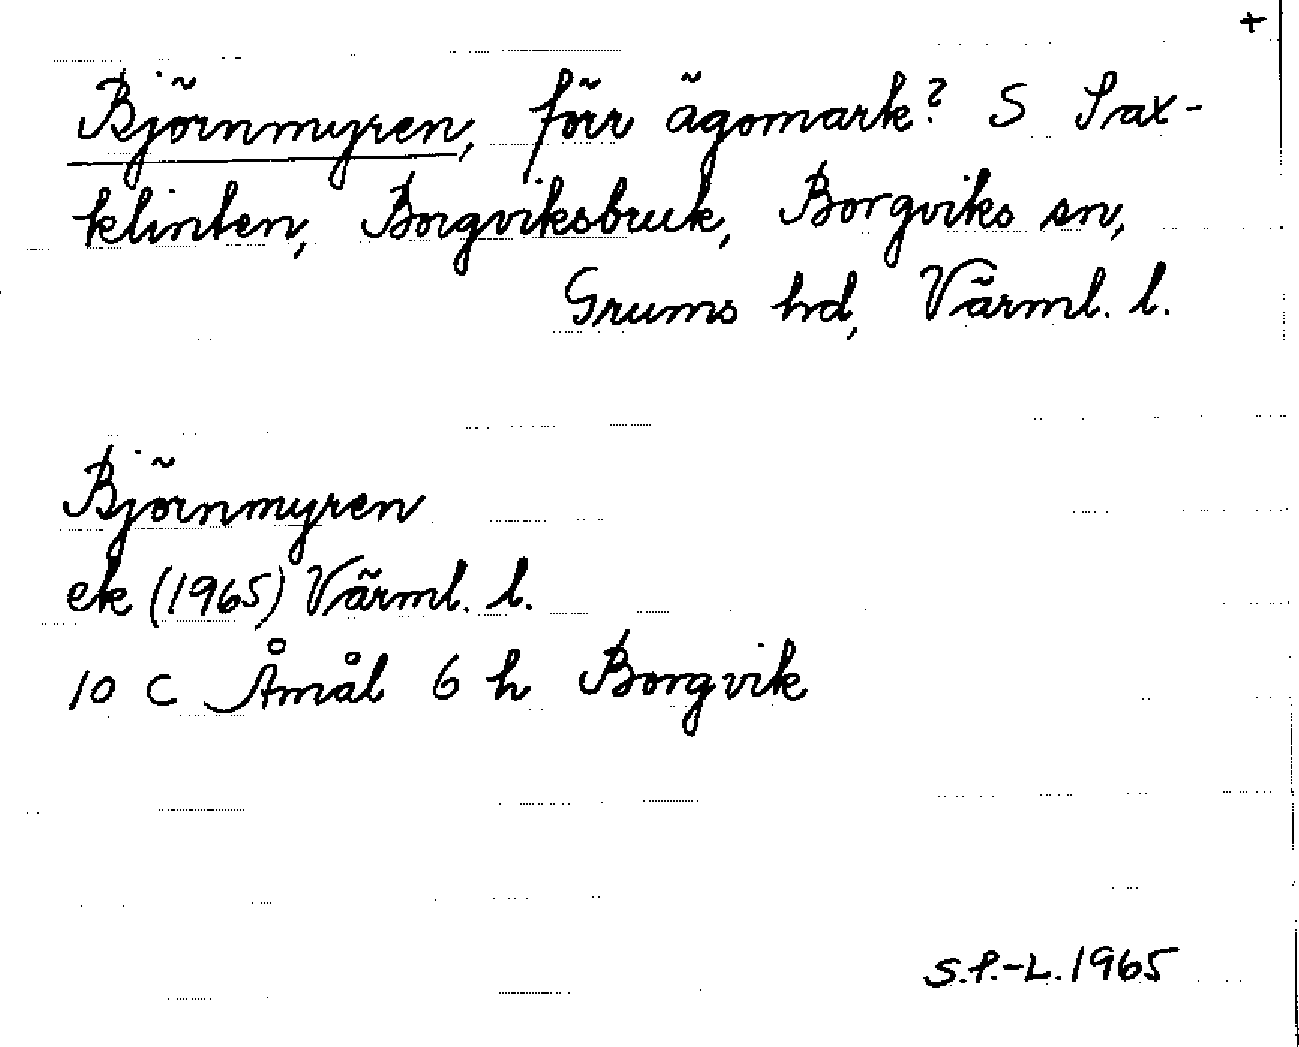 +
Björnmyren, förr ägomark? S Sax-
klinten, Borgviksbruk, Borgviks sn,
Grums hd, Värml. l.
Björnmyren
ek (1965) Värml. l.
10 C Åmål 6 h Borgvik
S.P.-L. 1965